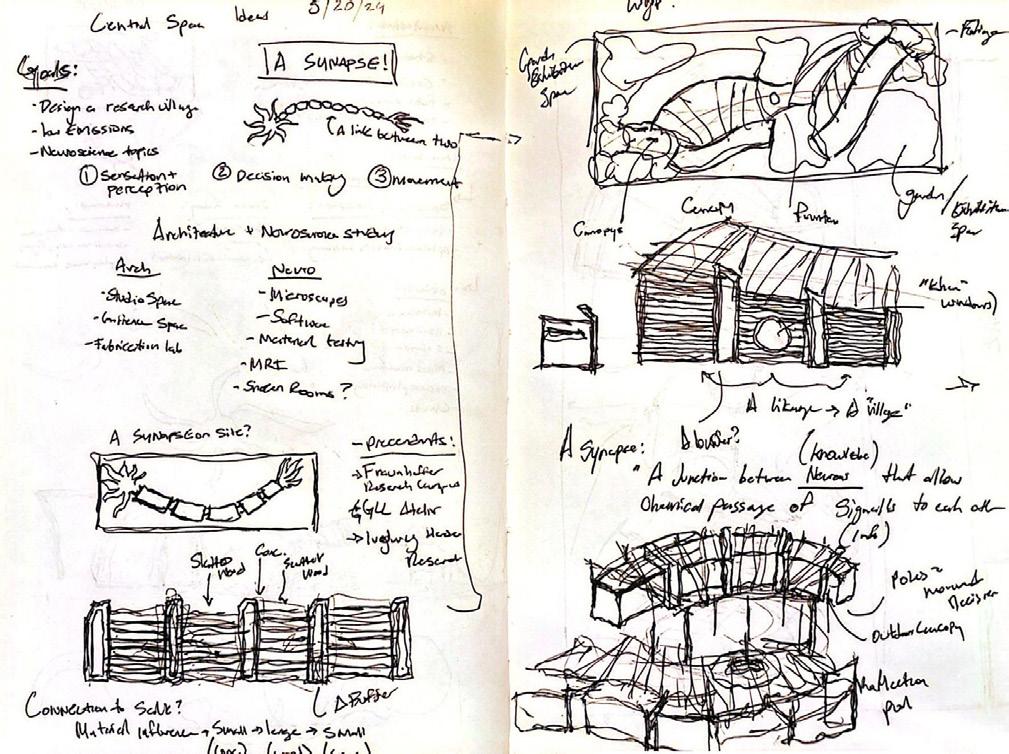 Central Space Ideas 3/20/24
Goals:
A SYNAPSE!
- Design a research village
- low EMISSIONS
- Neuroscience topics
A link between two
① Sensation + perception
② Decision making
③ Movement
Architecture + Neuroscience study
Arch
- Studio Space
- Fabrication lab
Neuro
- Microscopes
- Software
- Material testing
- MRI
- Rooms?
A SYNAPSE on site?
- precedents:
→ Fraunhofer
Research Campus
→ Research
Slatted
Wood
Conc.
Slatted
Wood
A Buffer
Connection to Scale?
Material influence → Small → large → Small
Garden
Exhibition
Space
Foliage
Canopy
Fountain
garden /
Exhibition
Space
windows)
A linkage → A "Village"
A buffer?
A Synapse:
(knowledge)
"A Junction between Neurons that allow
Chemical passage of Signals to each other
(info)
Outdoor Canopy
Reflection
pool